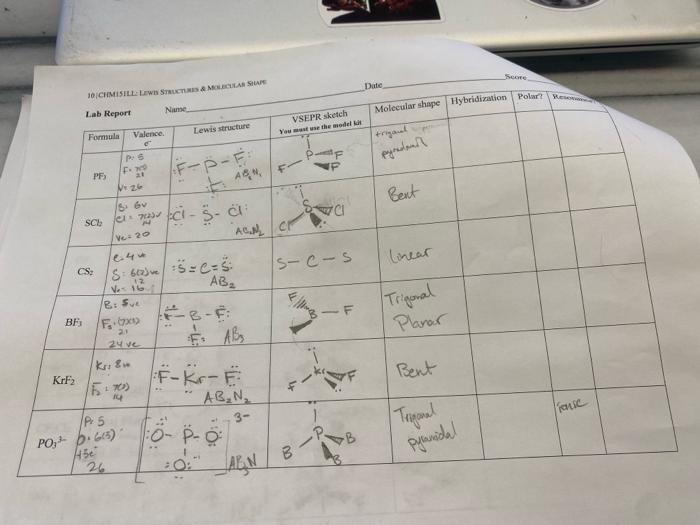 10|CHM151LL: LEWIS STRUCTURES & MOLECULAR SHAPE
Date
Score
Lab Report
Name
Formula
Valence e-
Lewis structure
VSEPR sketch
You must use the model kit
Molecular shape
Hybridization
Polar?
Resonance?
PF3
P: 5
21
V: 26
F-P-F:
F:
P F
F F
trigonal
pyramidal
SCl2
S: 6v
14
Ve: 20
:Cl - S - Cl:
AB2N2
S Cl
Cl
Bent
CS2
C: 4ve
S: 6(2)ve
12
Ve: 16
:S=C=S:
AB2
S-C-S
Linear
BF3
21
24 ve
F-B-F:
:F:
AB3
F
B-F
Trigonal
Planar
KrF2
Kr: 8ve
14
:F-Kr-F:
AB2N2
Kr F
F
Bent
PO3 3-
P: 5
O: 6(3)
+3e-
26
:O- P- O:
:O:
3-
AB3N
P B
B B
Trigonal
pyramidal
ionic